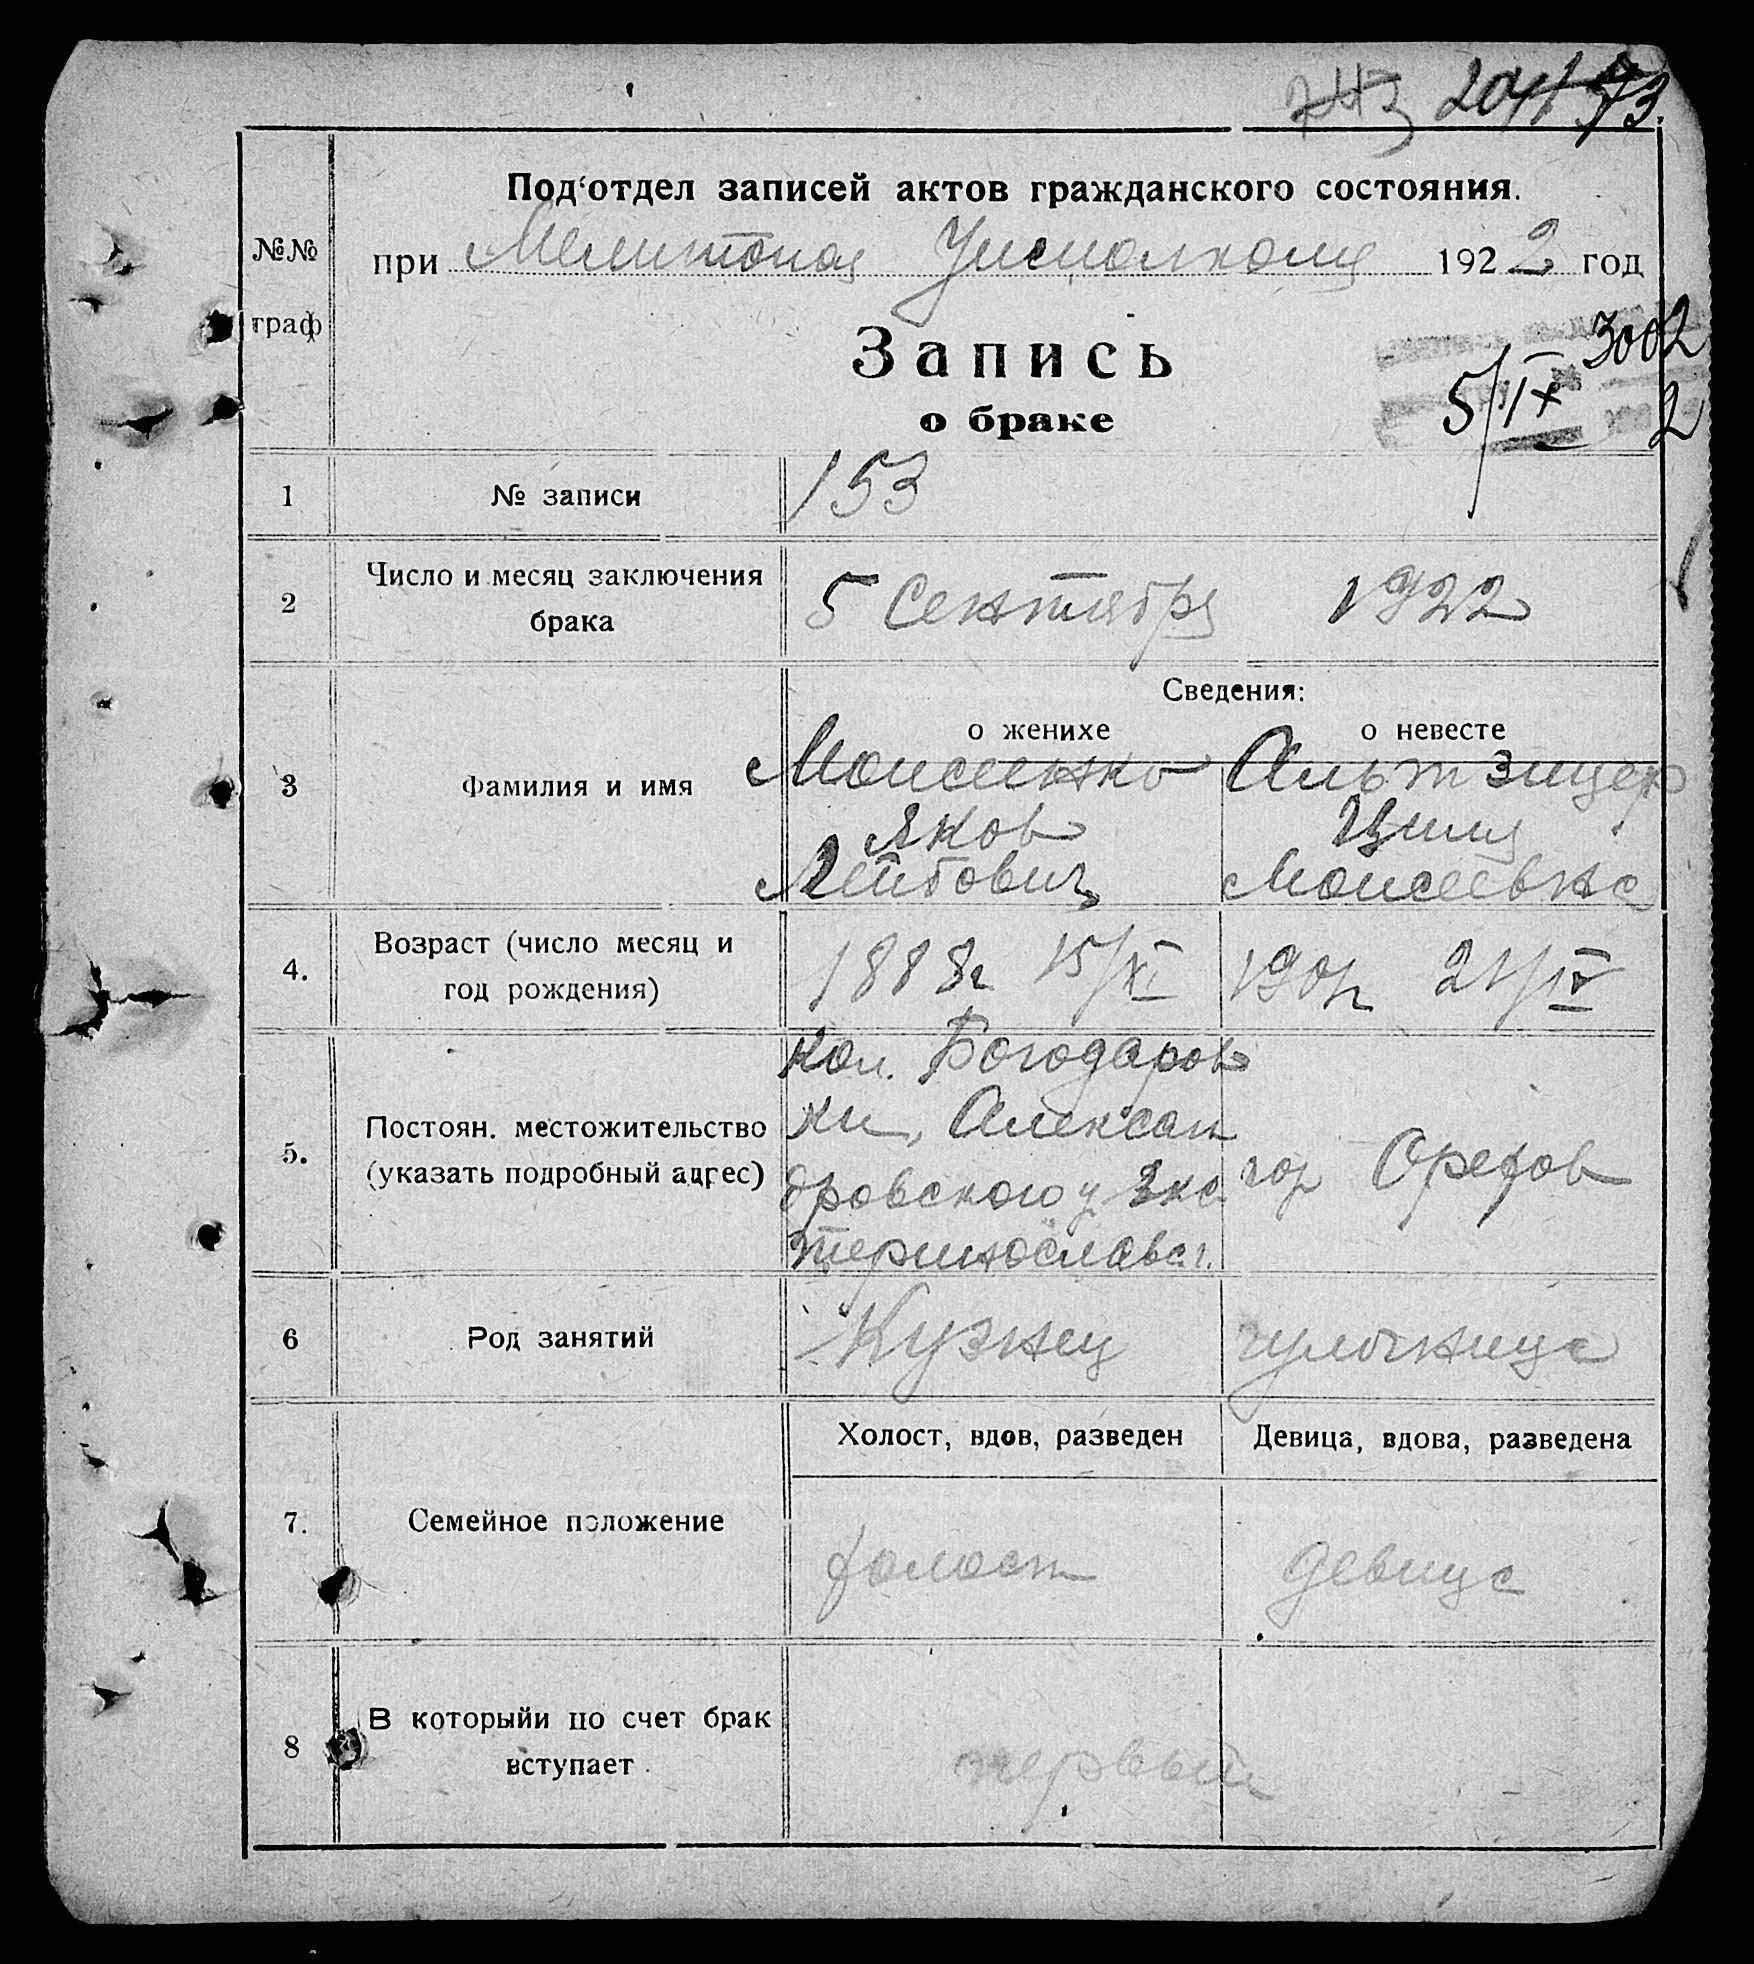 73.
Под‘отдел записей актов гражданского состояния.
№№ граф
при Мелитопол Уисполкоме 1922 год
Запись
о браке
3002
5/IX 2
1 № записи 153
2 Число и месяц заключения брака 5 Сентября 1922
Сведения:
о женихе о невесте
3 Фамилия и имя
Моисеенко Альтзицер
Яков Циля
Лейбович Моисеевна
4. Возраст (число месяц и
год рождения)
1888г 15/XI 21/IV
5. Постоян. местожительство
(указать подробный адрес)
Кол. Богодаров
ки, Алексан
дровского у Ека
теринославс.г.
гор Орехов
6 Род занятий Кузнец чулочница
Холост, вдов, разведен Девица, вдова, разведена
7. Семейное положение холост девица
8 В которыйи по счет брак
вступает
первый